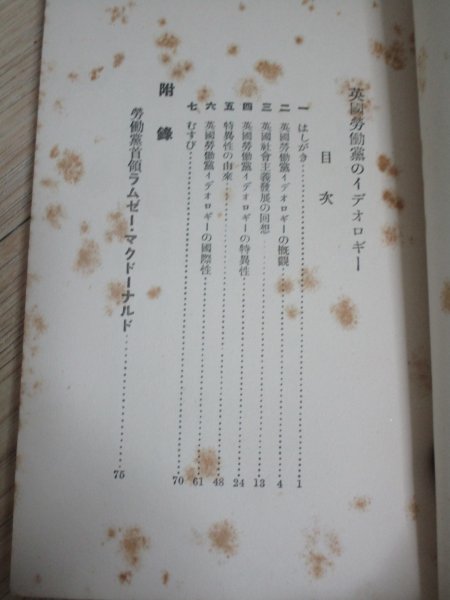 英國勞働黨のイデオロギー
目次
一 はしがき…………1
二 英國勞働黨イデオロギーの概觀…………4
三 英國社會主義發展の回想…………13
四 英國勞働黨イデオロギーの特異性…………24
五 特異性の由來…………48
六 英國勞働黨イデオロギーの國際性…………61
七 むすび…………70
附錄
勞働黨首領ラムゼー・マクドーナルド…………75